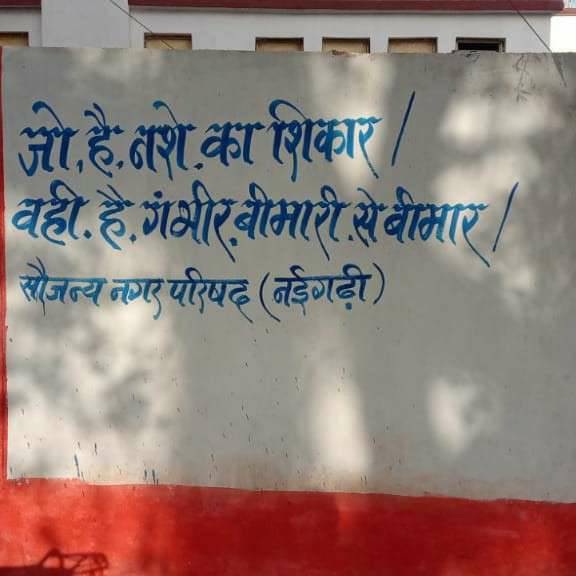 जो.है.नशे.का शिकार /
वही.है.गंभीर.बीमारी.से बीमार /
सौजन्य नगर परिषद (नईगढ़ी)